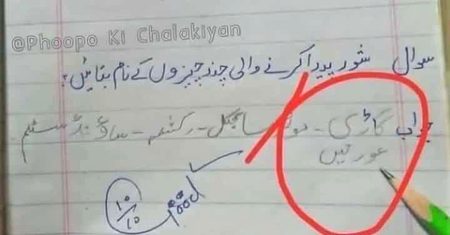 @Phoopo Ki Chalakiyan
سوال شور پیدا کرنے والی چند چیزوں کے نام بتائیں؟
جواب گاڑی - موٹر سائیکل - رکشہ - ساؤنڈ سسٹم
عورتیں
10/10 Good